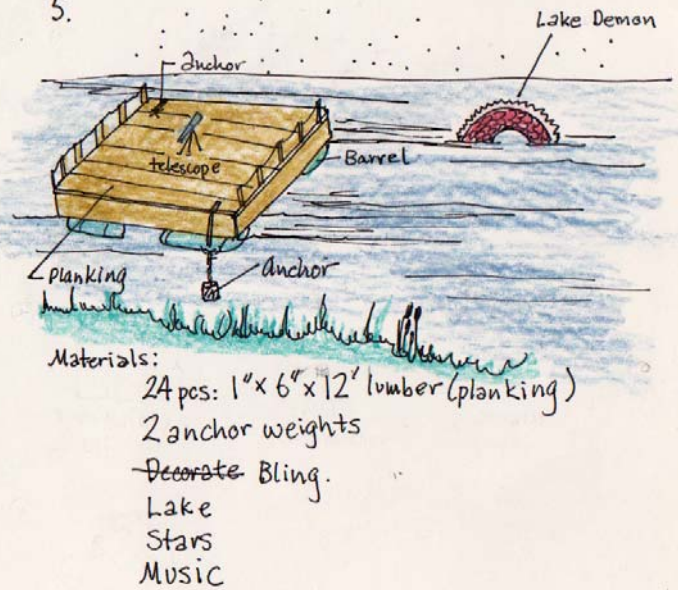 5.
Lake Demon
anchor
telescope
Barrel
planking
anchor
Materials:
24 pcs: 1"x 6"x 12' lumber (planking)
2 anchor weights
Decorate Bling.
Lake
Stars
Music